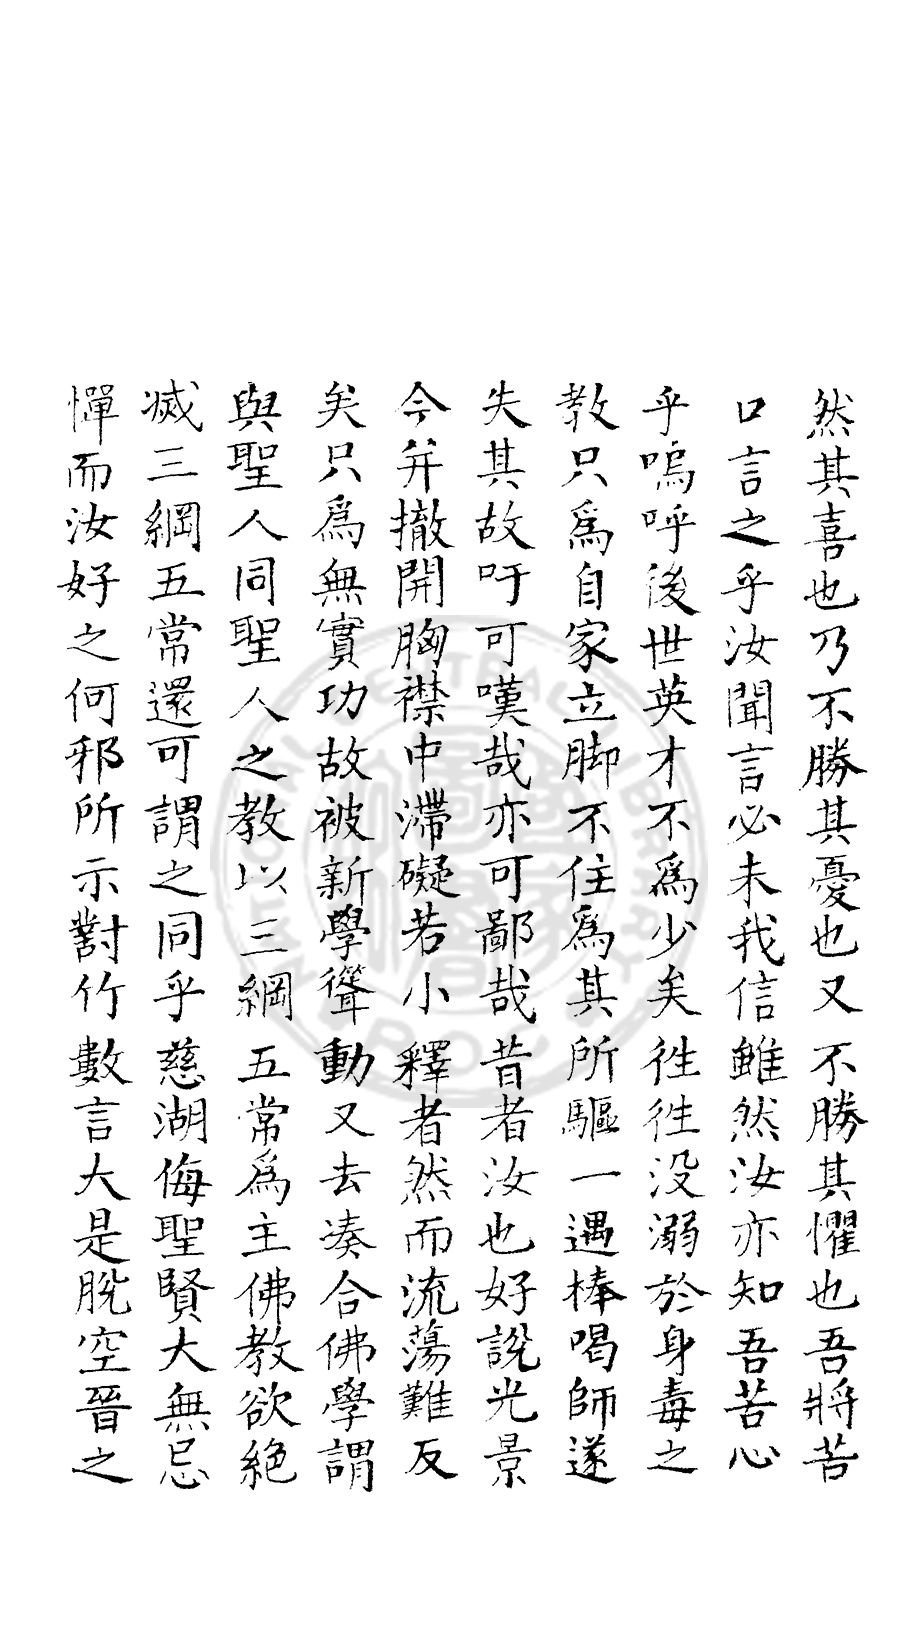 然其喜也乃不勝其憂也又不勝其懼也吾將苦
口言之乎汝聞言必未我信雖然汝亦知吾苦心
乎嗚呼後世英才不爲少矣徃徃没溺於身毒之
教只爲自家立脚不住爲其所驅一遇棒喝師遂
失其故吁可嘆哉亦可鄙哉昔者汝也好說光景
今并撤開胸襟中滯礙若小釋者然而流蕩難反
矣只爲無實功故被新學聳動又去湊合佛學謂
與聖人同聖人之教以三綱五常爲主佛教欲絶
滅三綱五常還可謂之同乎慈湖侮聖賢大無忌
憚而汝好之何邪所示對竹數言大是脫空晉之
NATIONAL CENTRAL LIBRARY